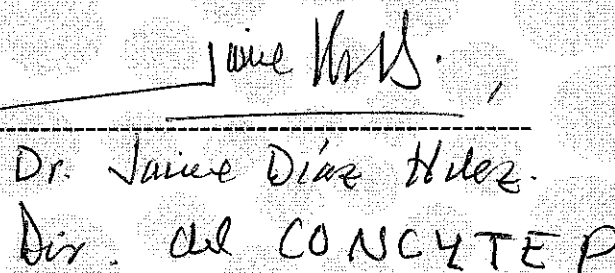 Jaime
Dr. Jaime Díaz Hdez.
Dir. del CONCYTEP